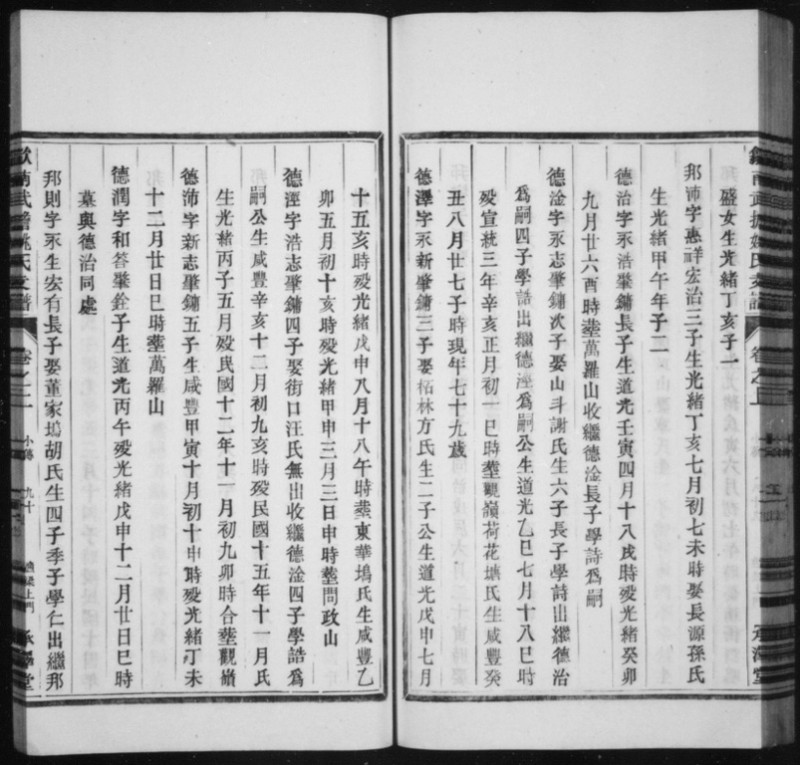 盛女生光緒丁亥子一
邦沛字惠祥宏治三子生光緒丁亥七月初七未時娶長源孫氏
生光緒甲午年子二
德治字永浩肇鏞長子生道光壬寅四月十八戌時殁光緒癸卯
九月廿六酉時塟萬羅山收繼德淦長子學詩爲嗣
德淦字永志肇鏞次子娶山斗謝氏生六子長子學詩出繼德治
爲嗣四子學誥出繼德淫爲嗣公生道光乙巳七月十八巳時
殁宣統三年辛亥正月初一巳時塟觀嶺荷花塘氏生咸豐癸
丑八月廿七子時現年七十九歲
德澤字永新肇鏞三子娶柘林方氏生二子公生道光戊申七月
十五亥時殁光緒戊申八月十八午時塟東華塢氏生咸豐乙
卯五月初十亥時殁光緒甲申三月三日申時塟問政山
德淫字浩志肇鏞四子娶街口汪氏無出收繼德淦四子學誥爲
嗣公生咸豐辛亥十二月初九亥時殁民國十五年十一月氏
生光緒丙子五月殁民國十二年十一月初九卯時合塟觀嶺
德沛字新志肇鏞五子生咸豐甲寅十月初十申時殁光緒丁未
十二月廿日巳時塟萬羅山
德潤字和答肇銓子生道光丙午殁光緒戊申十二月廿日巳時
墓與德治同處
邦則字永生宏有長子娶董家塢胡氏生四子季子學仁出繼邦
卷之二
小傳
九十